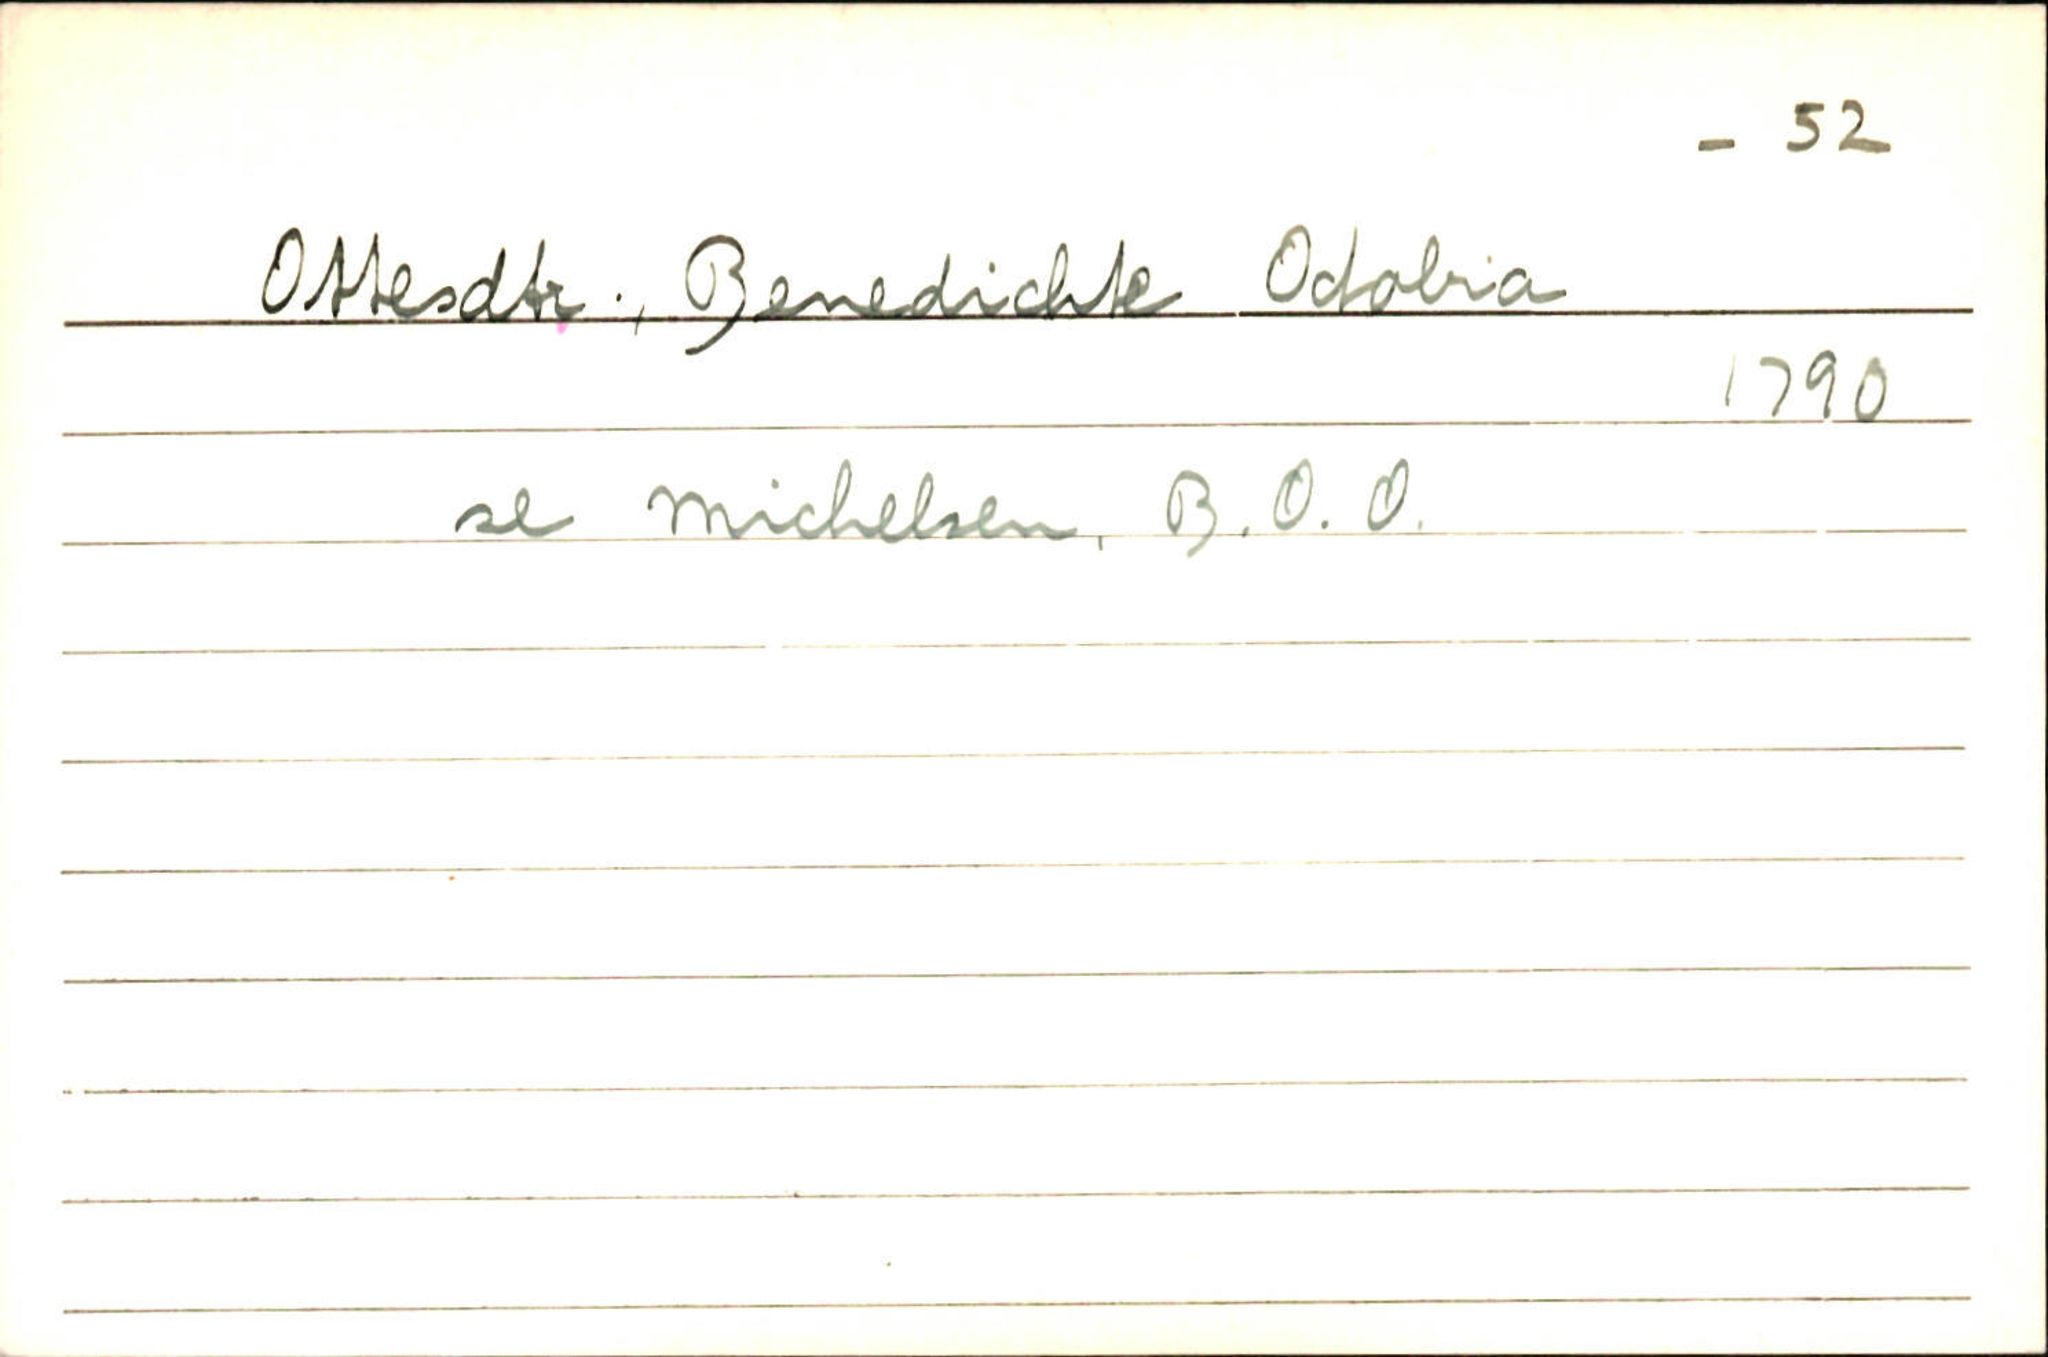 - 52
Ottesdtr., Benedichte Odabria
1790
se Michelsen, B. O. O.